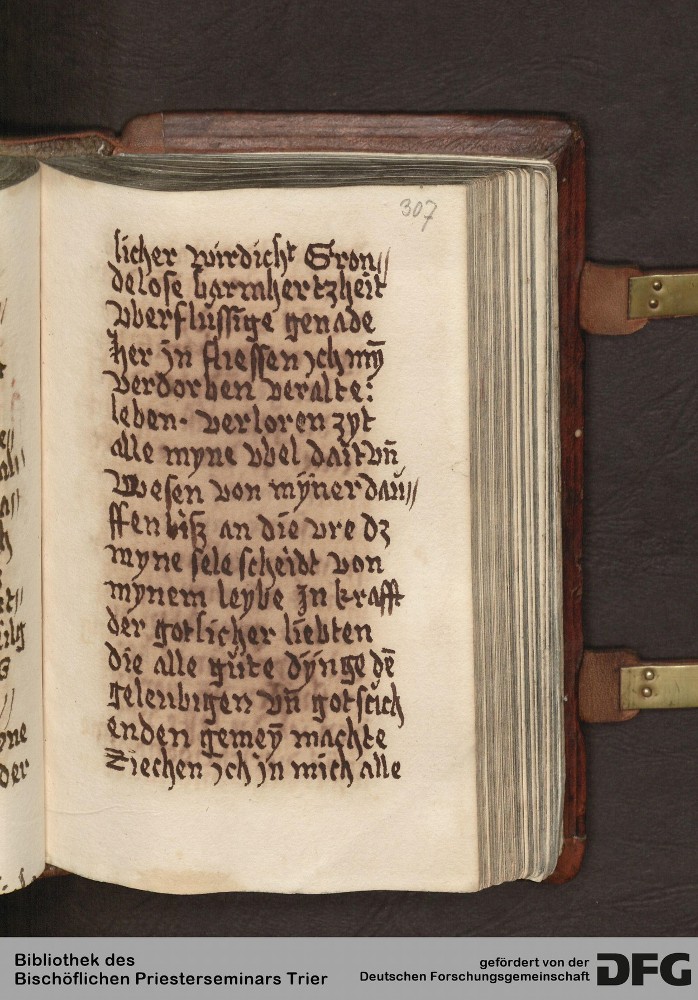 307
licher wirdicht Gron//
delose barmhertzheit
vberflussige genade
her jn fliessen jch mȳ
verdorben veralte:
leben· verloren zyt
alle myne vbel dait vn̄
Wesen von mӱner dau̇//
ffen biſz an die vre dz
myne sele scheidt von
mynem leybe Jn krafft
der gotlicher liebten
die alle gůte dӱnge dē
geleubigen vn̄ gotsůch
enden gemeȳ machte
Ziechen jch jn mich alle
Bibliothek des
Bischöflichen Priesterseminars Trier
gefördert von der
Deutschen Forschungsgemeinschaft
DFG